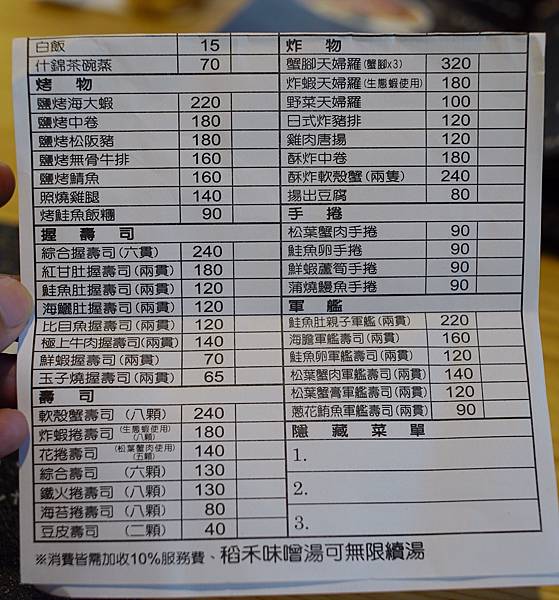 白飯 15
什錦茶碗蒸 70
烤 物
鹽烤海大蝦 220
鹽烤中卷 180
鹽烤松阪豬 180
鹽烤無骨牛排 160
鹽烤鯖魚 160
照燒雞腿 140
烤鮭魚飯糰 90
握 壽 司
綜合握壽司(六貫) 240
紅甘肚握壽司(兩貫) 180
鮭魚肚握壽司(兩貫) 120
海鱺肚握壽司(兩貫) 120
比目魚握壽司(兩貫) 120
極上牛肉握壽司(兩貫) 140
鮮蝦握壽司(兩貫) 70
玉子燒握壽司(兩貫) 65
壽 司
軟殼蟹壽司 (八顆) 240
炸蝦捲壽司 (生態蝦使用)(八顆) 180
花捲壽司 (松葉蟹肉使用)(五顆) 140
綜合壽司 (六顆) 130
鐵火捲壽司 (八顆) 130
海苔捲壽司 (八顆) 80
豆皮壽司 (二顆) 40
炸 物
蟹腳天婦羅(蟹腳x3) 320
炸蝦天婦羅(生態蝦使用) 180
野菜天婦羅 100
日式炸豬排 120
雞肉唐揚 120
酥炸中卷 180
酥炸軟殼蟹(兩隻) 240
揚出豆腐 80
手 捲
松葉蟹肉手捲 90
鮭魚卵手捲 90
鮮蝦蘆筍手捲 90
蒲燒鰻魚手捲 90
軍 艦
鮭魚肚親子軍艦(兩貫) 220
海膽軍艦壽司(兩貫) 160
鮭魚卵軍艦壽司(兩貫) 120
松葉蟹肉軍艦壽司(兩貫) 140
松葉蟹膏軍艦壽司(兩貫) 120
蔥花鮪魚軍艦壽司(兩貫) 90
隱 藏 菜 單
1.
2.
3.
※消費皆需加收10%服務費、稻禾味噌湯可無限續湯